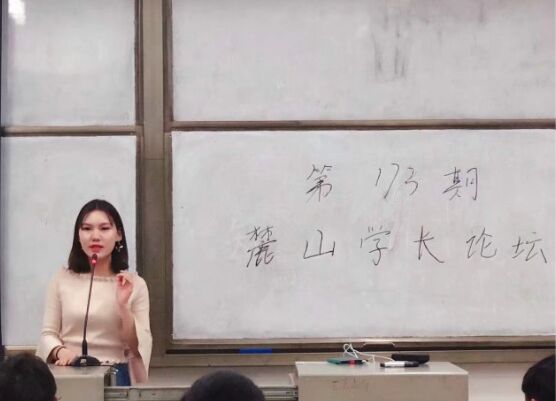 第173期
麓山学长论坛